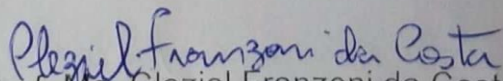 Cleziel Franzoni da Costa
Cleziel Franzoni da Costa